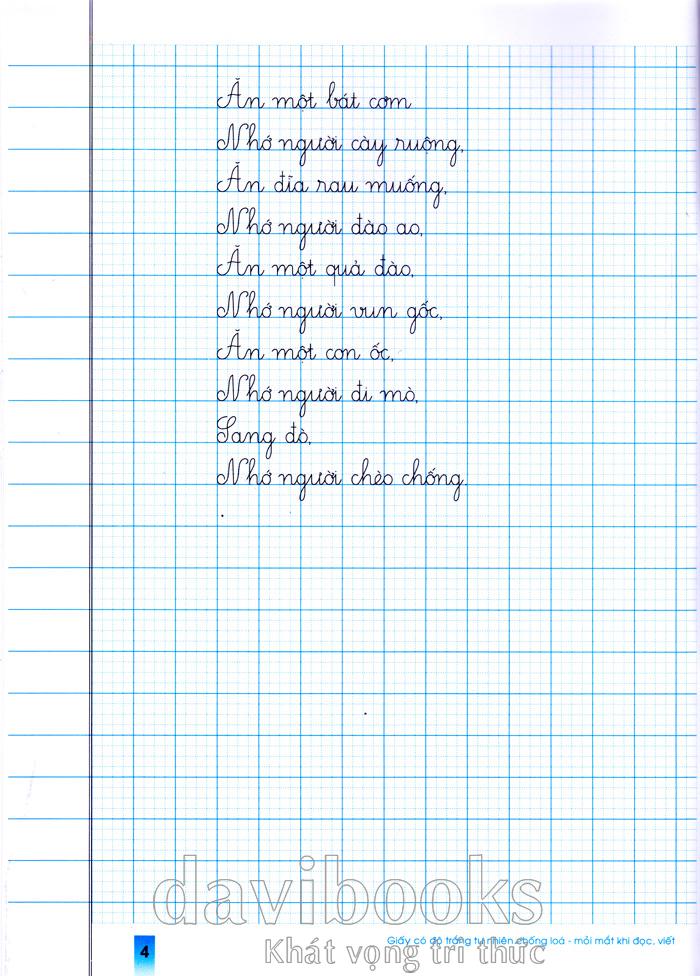 Ăn một bát cơm
Nhớ người cày ruộng,
Ăn đĩa rau muống,
Nhớ người đào ao,
Ăn một quả đào,
Nhớ người vun gốc,
Ăn một con ốc,
Nhớ người đi mò,
Sang đò,
Nhớ người chèo chống.
davibooks
Giấy có độ trắng tự nhiên chống loá - mỏi mắt khi đọc, viết
Khát vọng tri thức
4